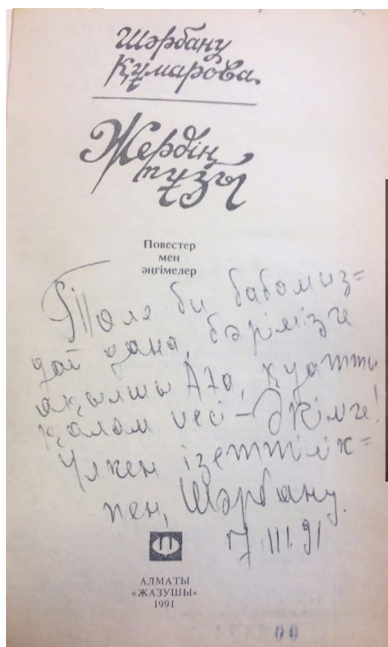 Шәрбану
Құмарова
Жердің
тұзы
Повестер
мен
әңгімелер
Төле би бабамыз=
дай дана, бәрімізге
ақылшы Аға, қуатты
қалам иесі – Әкімге!
Үлкен ізеттілік=
пен, Шәрбану.
7 III. 91
АЛМАТЫ
«ЖАЗУШЫ»
1991